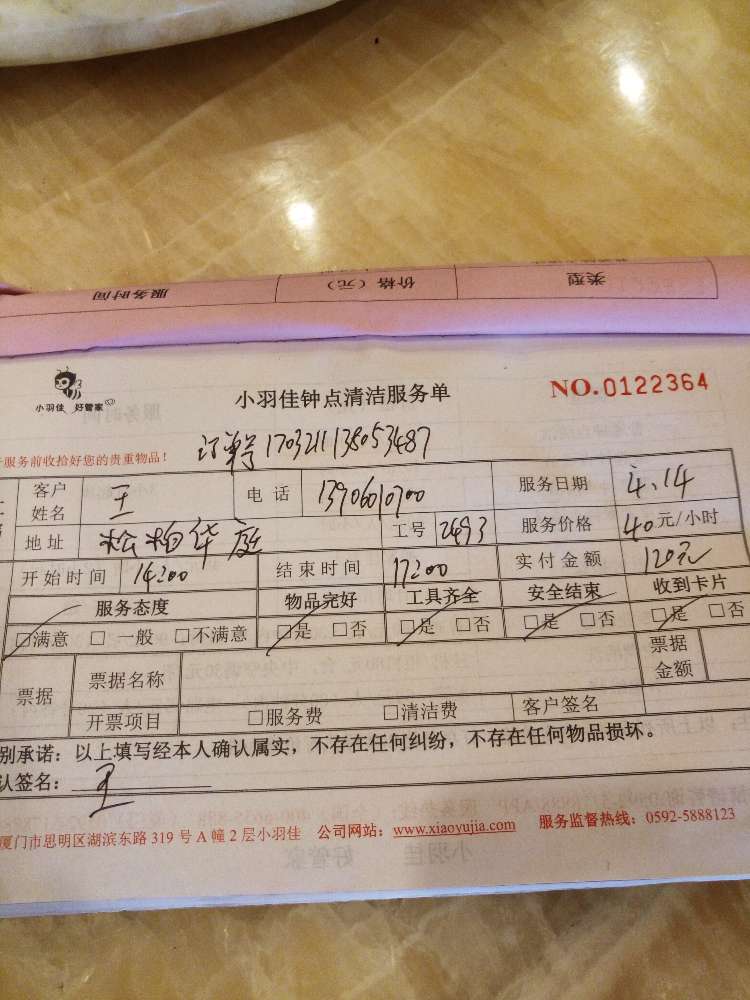 类型 价格（元） 服务时间
小羽佳 好管家
小羽佳钟点清洁服务单 NO.0122364
服务前收拾好您的贵重物品！ 订单号 1703211138053487
客户姓名 王 电话 13906010700 服务日期 4.14
地址 松柏华庭 工号 2493 服务价格 40元/小时
开始时间 14:00 结束时间 17:00 实付金额 120元
服务态度 物品完好 工具齐全 安全结束 收到卡片
□满意 □一般 □不满意 □是 □否 □是 □否 □是 □否 □是 □否
票据 票据名称 票据金额
开票项目 □服务费 □清洁费 客户签名
别承诺：以上填写经本人确认属实，不存在任何纠纷，不存在任何物品损坏。
认签名： 王
厦门市思明区湖滨东路319号A幢2层小羽佳 公司网站：www.xiaoyujia.com 服务监督热线：0592-5888123